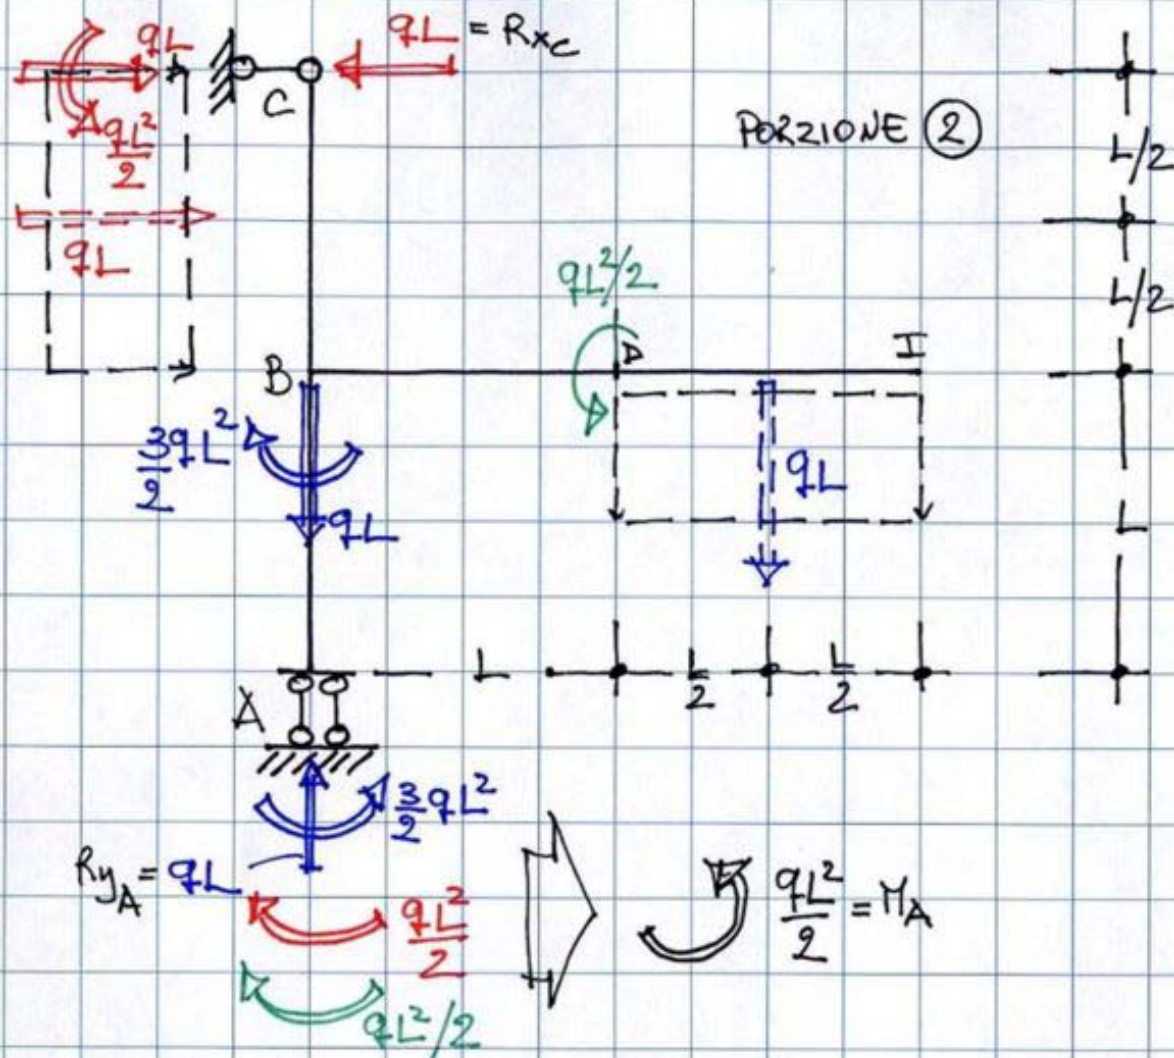 qL
qL = Rx_C
C
qL²/2
PORZIONE ②
L/2
qL
qL²/2
L/2
B
A
I
3/2 qL²
qL
qL
L
L
L/2
L/2
A
3/2 qL²
Ry_A = qL
qL²/2
qL²/2 = M_A
qL²/2